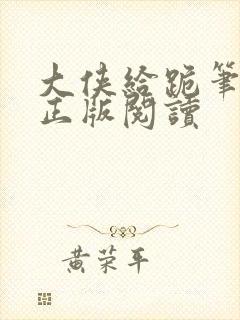 大俠給跪筆
正版閱讀
黄荣平